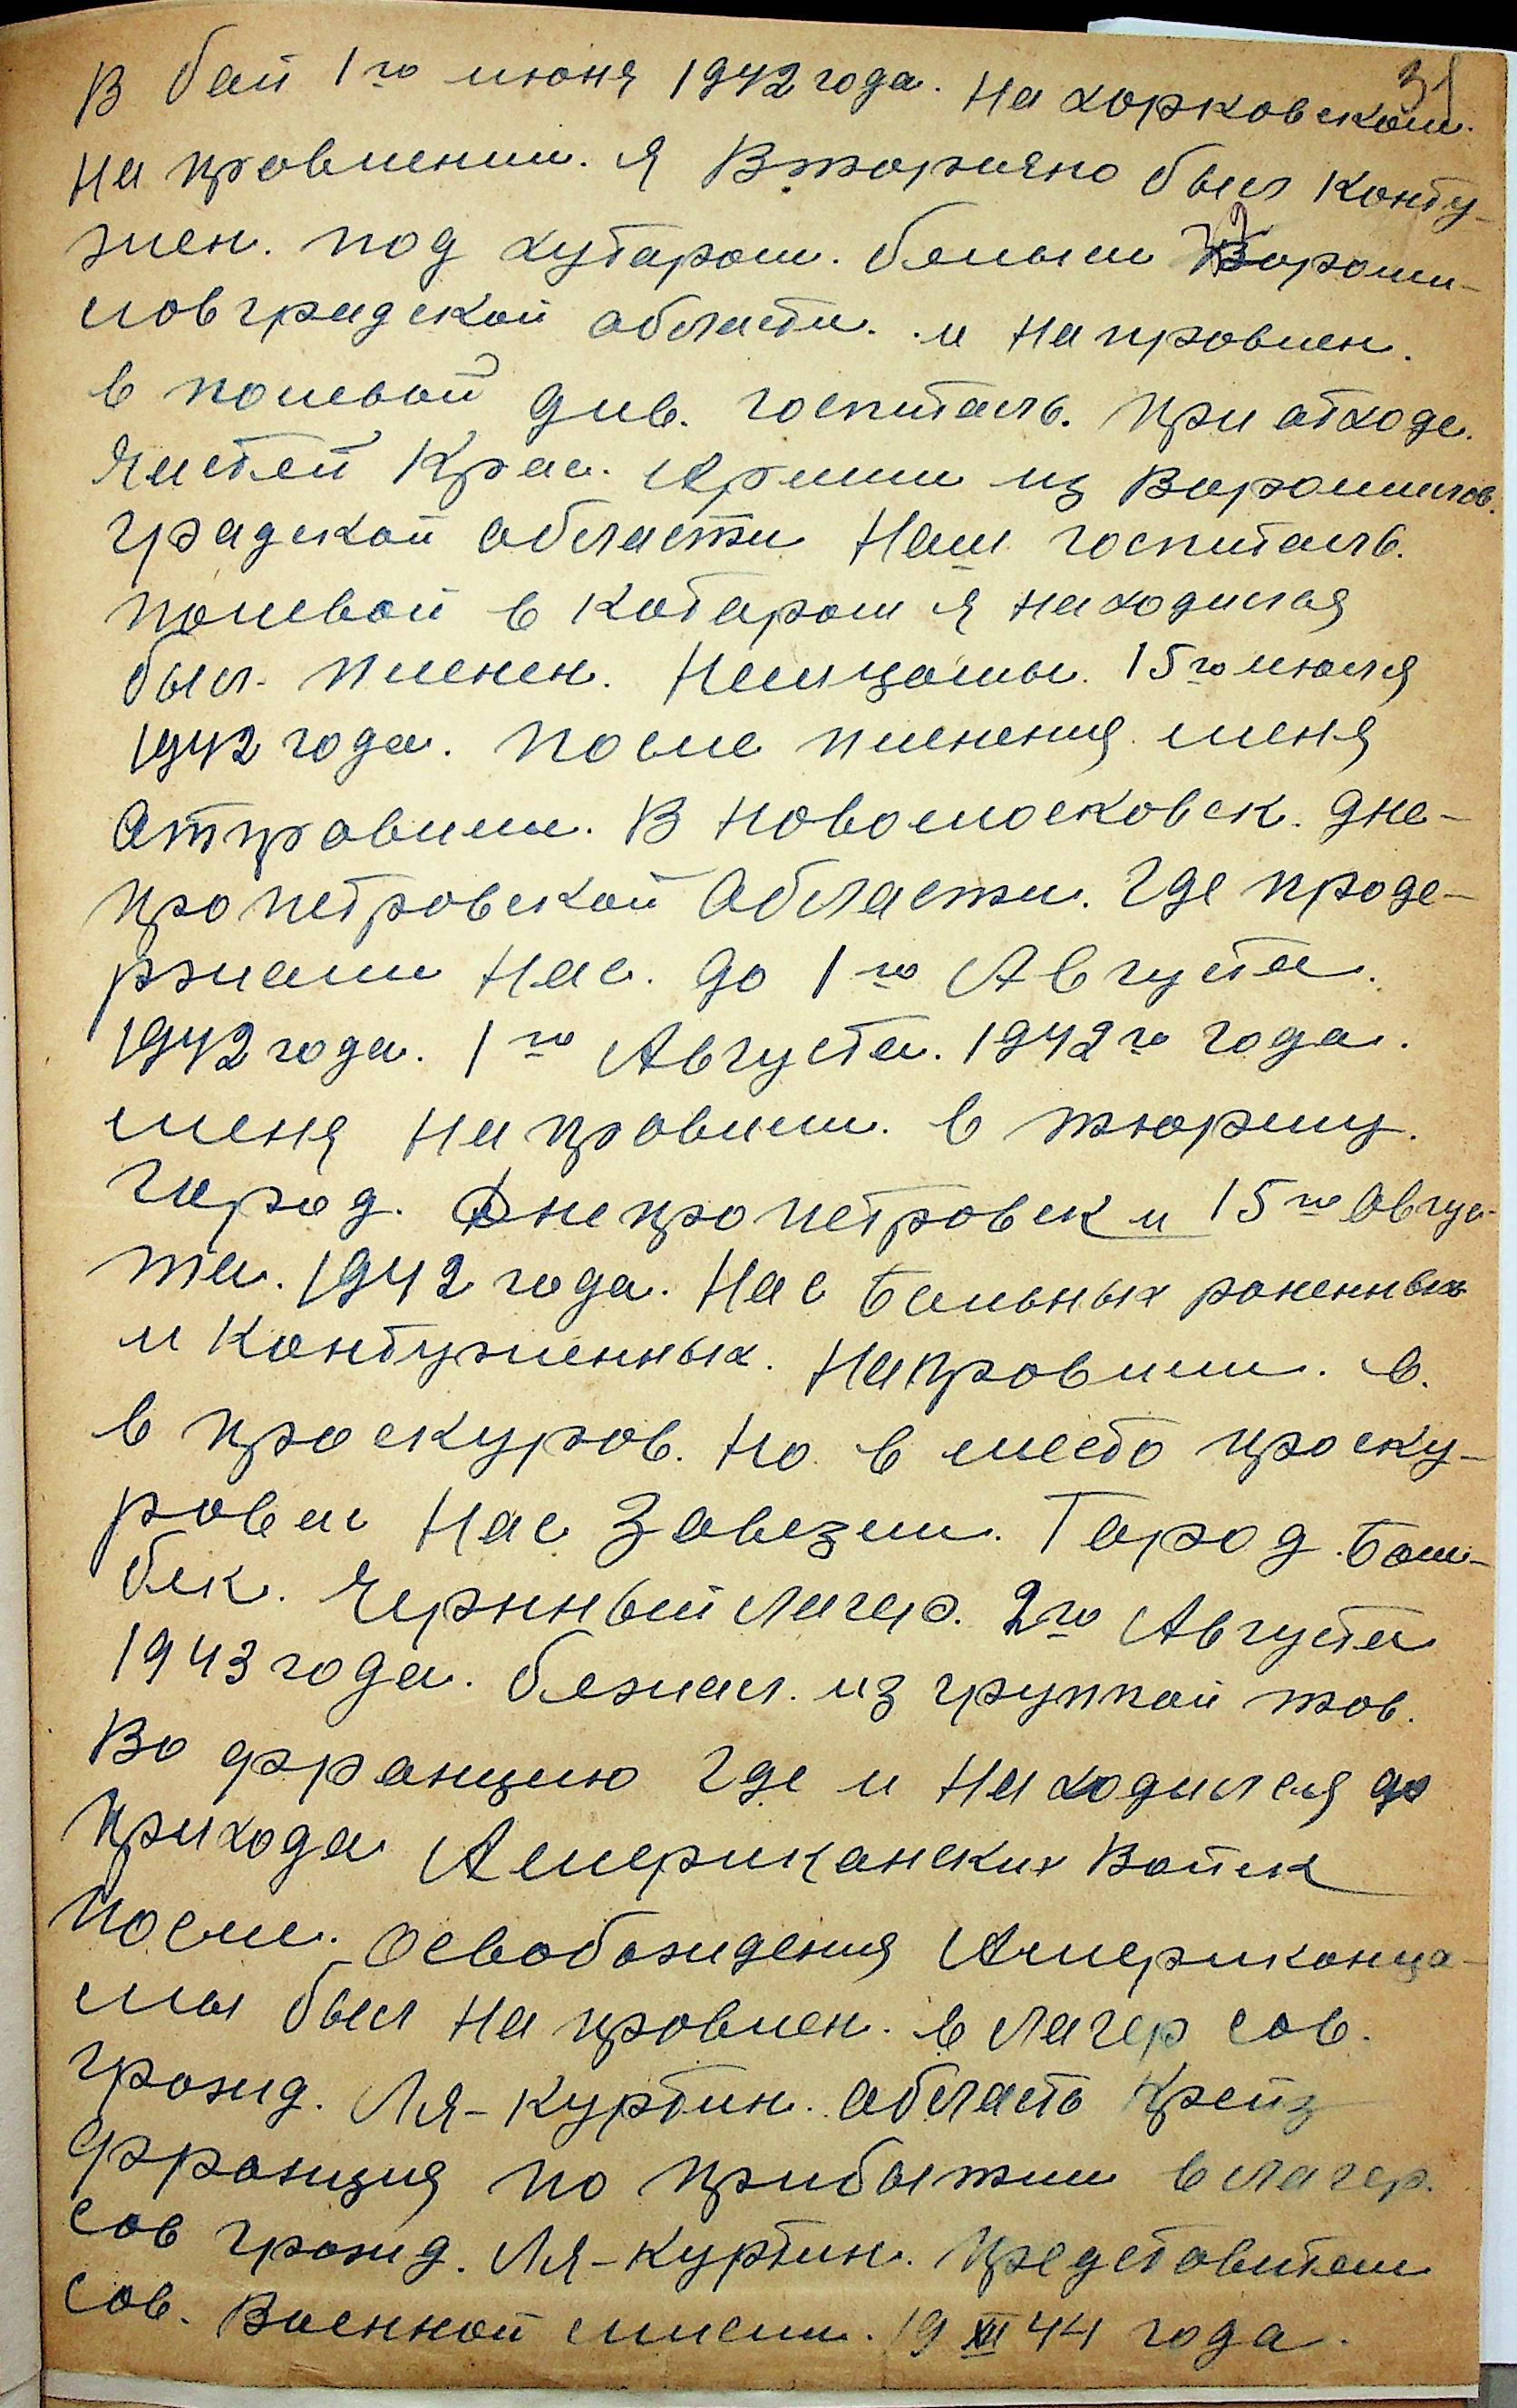 31
В бай 1го июня 1942 года. На хорковском.
На провлении. я Вторично был конту-
жен. под хутаром. белым Вороши-
ловградской области. и напровлен.
в полевой див. госпиталь. при атходе.
Частей Крас. Армии из Ворошилов.
градской области Наш госпиталь.
полевой в катаром я находился
был пленен. Немцамы. 15го июля
1942 года. после пленения меня
атправили. В Новомосковск. дне-
пропетровской области. Где проде-
ржали нас. до 1го Августа.
1942 года. 1го Августа. 1942го года.
меня направили. в тюрму.
Город. Днепропетровск и 15го Авгус-
та. 1942 года. Нас больных раненных
и контуженных. Направили. в.
в проскуров. но в место проску-
ровеи нас Завезли. Город. Бам-
бек. Чернный лагер. 2го Августа
1943 года. бежал. из группой тов.
Во францию где и находился до
прихода Американских Войск
После. Освобождения Американца-
мы был на провлен. в лагер сов.
гражд. Ля-куртин. область Крейз
франция по прибытии в лагер.
сов гражд. Ля-куртин. представители
сов. Военной мисии. 19 XII 44 года.